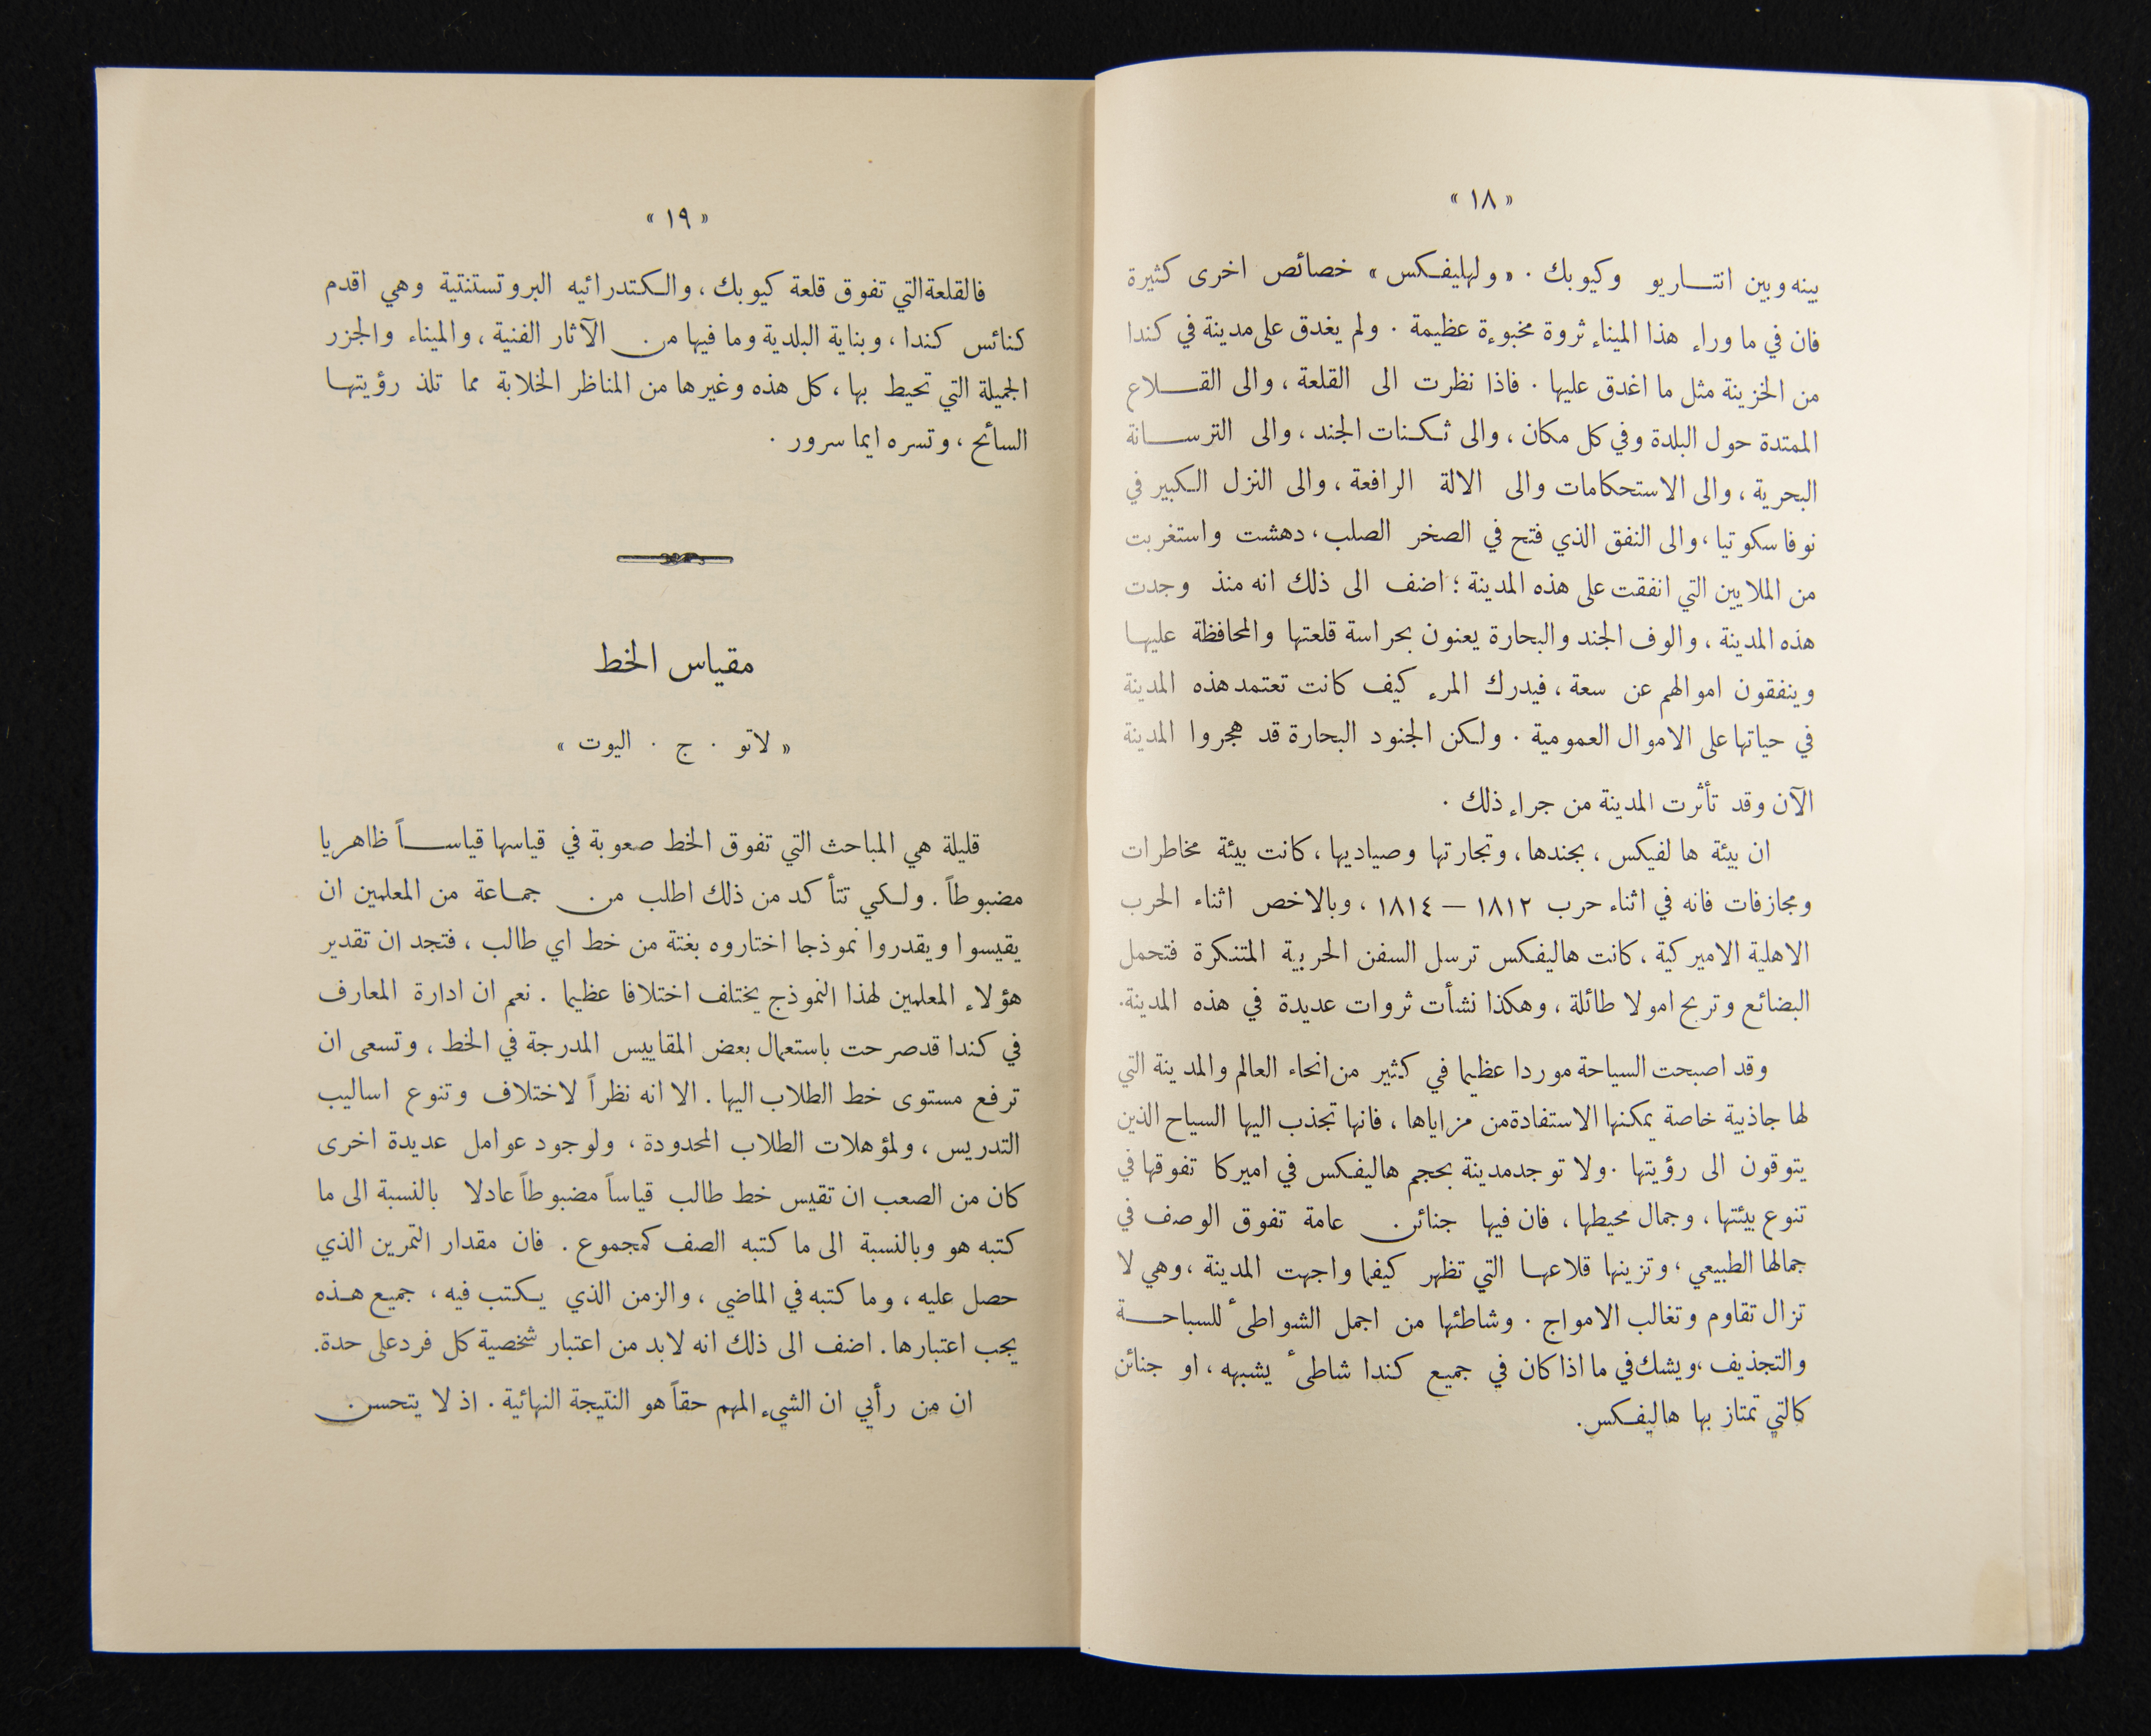 « ١٨ »
بينه وبين انتـاريو وكيوبك . « ولهليفكس » خصائص اخرى كثيرة
فان في ما وراء هذا الميناء ثروة مخبوءة عظيمة . ولم يغدق على مدينة في كندا
من الخزينة مثل ما اغدق عليها . فاذا نظرت الى القلعة ، والى القـلاع
الممتدة حول البلدة وفي كل مكان ، والى ثكنات الجند ، والى الترسـانة
البحرية ، والى الاستحكامات والى الالة الرافعة ، والى النزل الكبير في
نوفاسكوتيا ، والى النفق الذي فتح في الصخر الصلب ، دهشت واستغربت
من الملايين التي انفقت على هذه المدينة ؛ اضف الى ذلك انه منذ وجدت
هذه المدينة ، والوف الجند والبحارة يعنون بحراسة قلعتها والمحافظة عليهـا
وينفقون اموالهم عن سعة ، فيدرك المرء كيف كانت تعتمد هذه المدينة
في حياتها على الاموال العمومية . ولكن الجنود البحارة قد هجروا المدينة
الآن وقد تأثرت المدينة من جراء ذلك .
ان بيئة هالفيكس ، بجندها ، وتجارتها وصياديها ، كانت بيئة مخاطرات
ومجازفات فانه في اثناء حرب ١٨١٢ — ١٨١٤ ، وبالاخص اثناء الحرب
الاهلية الاميركية ، كانت هاليفكس ترسل السفن الحربية المتنكرة فتحمل
البضائع وتربح امولا طائلة ، وهكذا نشأت ثروات عديدة في هذه المدينة.
وقد اصبحت السياحة موردا عظيما في كثير من انحاء العالم والمدينة التي
لها جاذبية خاصة يمكنها الاستفادة من مزاياها ، فانها تجذب اليها السياح الذين
يتوقون الى رؤيتها . ولا توجد مدينة بحجم هاليفكس في اميركا تفوقها في
تنوع بيئتها ، وجمال محيطها ، فان فيها جنائن عامة تفوق الوصف في
جمالها الطبيعي ؛ وتزينها قلاعهـا التي تظهر كيفما واجهت المدينة ، وهي لا
تزال تقاوم وتغالب الامواج . وشاطئها من اجمل الشواطىٔ للسباحـة
والتجذيف ، ويشك في ما اذا كان في جميع كندا شاطىٔ يشبهه ، او جنائن
كالتي تمتاز بها هاليفكس.
« ١٩ »
فالقلعة التي تفوق قلعة كيوبك ، والكتدرائيه البروتستنتية وهي اقدم
كنائس كندا ، وبناية البلدية وما فيها من الآثار الفنية ، والميناء والجزر
الجميلة التي تحيط بها ، كل هذه وغيرها من المناظر الخلابة مما تلذ رؤيتهـا
السائح ، وتسره ايما سرور .
مقياس الخط
« لاتو . ج . اليوت »
قليلة هي المباحث التي تفوق الخط صعوبة في قياسها قياسـاً ظاهريا
مضبوطاً . ولكي تتأكد من ذلك اطلب من جمـاعة من المعلمين ان
يقيسوا ويقدروا نموذجا اختاروه بغتة من خط اي طالب ، فتجد ان تقدير
هؤلاء المعلمين لهذا النموذج يختلف اختلافا عظيما . نعم ان ادارة المعارف
في كندا قد صرحت باستعمال بعض المقاييس المدرجة في الخط ، وتسعى ان
ترفع مستوى خط الطلاب اليها . الا انه نظراً لاختلاف وتنوع اساليب
التدريس ، ولمؤهلات الطلاب المحدودة ، ولوجود عوامل عديدة اخرى
كان من الصعب ان تقيس خط طالب قياساً مضبوطاً عادلا بالنسبة الى ما
كتبه هو وبالنسبة الى ما كتبه الصف كمجموع . فان مقدار التمرين الذي
حصل عليه ، وما كتبه في الماضي ، والزمن الذي يكتب فيه ، جميع هـذه
يجب اعتبارها . اضف الى ذلك انه لابد من اعتبار شخصية كل فرد على حدة.
ان من رأيي ان الشيء المهم حقاً هو النتيجة النهائية . اذ لا يتحسن